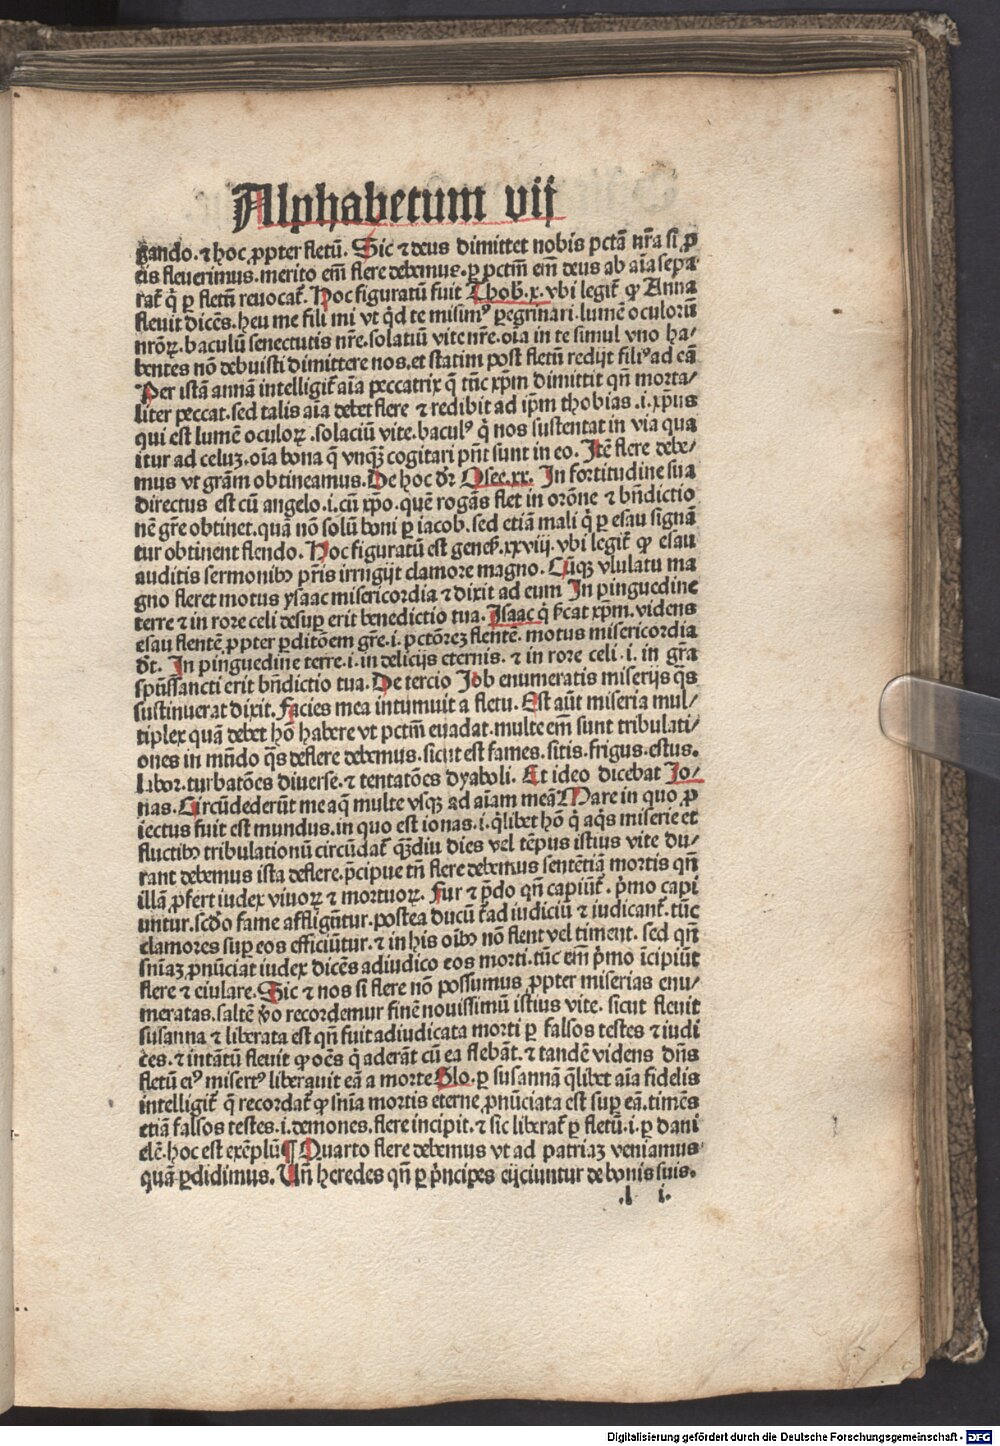 Alphabetum vij
gando. ⁊ hoc ꝓpter fletū. Sic ⁊ deus dimittet nobis pctā nr̄a si ꝓ
eis fleuerimus. merito em̄ flere debemus. ꝑ pctm̄ em̄ deus ab aīa sepa
rat᷑ q̇ ꝑ fletū reuocat᷑. Hoc figuratū fuit Thob. x. vbi legit᷑ ꝙ Anna
fleuit dicēs. heu me fili mi vt qͥd te misimꝰ ꝑegrinari. lumē oculorū
nrōꝝ. baculū senectutis nr̄e. solatiū vite nr̄e. oīa in te simul vno ha-
bentes nō debuisti dimittere nos. et statim post fletū redijt filiꝰ ad eā
Per istā annā intelligit᷑ aīa peccatrix q̄ tūc xp̄m dimittit qn̄ morta/
liter peccat. sed talis aīa debet flere ⁊ redibit ad ip̄m thobias .i. xp̄us
qui est lumē oculoꝝ .solaciū vite. baculꝰ q̇ nos sustentat in via qua
itur ad celuꝫ. oīa bona q̄ vnqꝫ cogitari pn̄t sunt in eo. Itē flere debe-
mus vt grām obtineamus. De hoc dr̄ Osee. xx. In fortitudine sua
directus est cū angelo .i. cū xp̄o. quē rogās flet in orōne ⁊ bn̄dictio
nē gr̄e obtinet. quā nō solū boni ꝑ iacob. sed etiā mali q̇ ꝑ esau signā
tur obtinent flendo. Hoc figuratū est geneſ. xxviij. vbi legit᷑ ꝙ esau
auditis sermonibꝰ pr̄is irrugijt clamore magno. Cūqꝫ vlulatu ma
gno fleret motus ysaac misericordia ⁊ dixit ad eum In pinguedine
terre ⁊ in rore celi desuꝑ erit benedictio tua. Isaac q̇ sͥcat xp̄m. videns
esau flentē ꝓpter ꝑditōem gr̄e .i. pctōreꝫ flentē. motus misericordia
dt̄. In pinguedine terre .i. in delicijs eternis. ⁊ in rore celi .i. in gr̄a
spūssancti erit bn̄dictio tua. De tercio Job enumeratis miserijs q̄s
sustinuerat dixit. Facies mea intumuit a fletu. Est aūt miseria mul/
tiplex quā debet hō habere vt pctm̄ euadat. multe em̄ sunt tribulati-
ones in mūdo q̄s deflere debemus. sicut est fames. sitis. frigus. estus.
labor. turbatōes diuerse. ⁊ tentatōes dyaboli. Et ideo dicebat Jo/
nas. Circūdederūt me aq̄ multe vsqꝫ ad aīam meā Mare in quo ꝓ
iectus fuit est mundus. in quo est ionas .i. qͥlibet hō q̇ aq̄s miserie et
fluctibꝰ tribulationū circūdat᷑ qꝫdiu dies vel tēpus istius vite du/
rant debemus ista deflere. p̄cipue tn̄ flere debemus sentētiā mortis qn̄
illā ꝓfert iudex viuoꝝ ⁊ mortuoꝝ. Fur ⁊ p̄do qn̄ capiūt᷑. pͥmo capi
untur. scd̄o fame affligūtur. postea ducūt᷑ ad iudiciū ⁊ iudicant᷑. tūc
clamores suꝑ eos efficiūtur. ⁊ in his oībꝰ nō flent vel timent. sed qn̄
sn̄iaꝫ ꝓnūciat iudex dicēs adiudico eos morti. tūc em̄ pͥmo īcipiūt
flere ⁊ eiulare. Sic ⁊ nos si flere nō possumus ꝓpter miserias enu/
meratas. saltē v̊o recordemur finē nouissimū istius vite. sicut fleuit
susanna ⁊ liberata est qn̄ fuit adiudicata morti ꝑ falsos testes ⁊ iudi
ces. ⁊ intātū fleuit ꝙ oēs q̇ aderāt cū ea flebāt. ⁊ tandē videns dn̄s
fletū eiꝰ misertꝰ liberauit eā a morte Glo. ꝑ susannā qͥlibet aīa fidelis
intelligit᷑ q̄ recordat᷑ ꝙ sn̄ia mortis eterne ꝓnūciata est suꝑ eā. timēs
etiā falsos testes .i. demones. flere incipit. ⁊ sic liberat᷑ ꝑ fletū .i. ꝑ dani
elē. hoc est exēplū ¶ Quarto flere debemus vt ad patriaꝫ veniamus
quā ꝑdidimus. Un̄ heredes qn̄ ꝑ pͥncipes eijciuntur de bonis suis.
.l i.
Digitalisierung gefördert durch die Deutsche Forschungsgemeinschaft - DFG